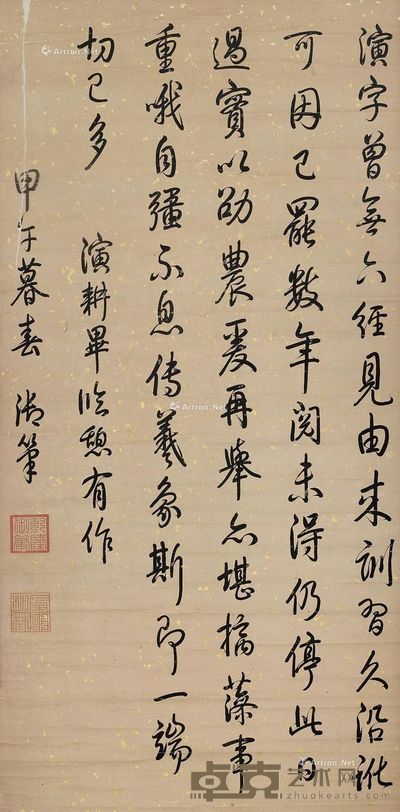 演字曾無六經見由來訓習久沿訛
可因已罷數年閱未得仍停此日
過實以劭農爰再舉亦堪摛藻聿
重哦自彊不息傳羲象斯即一端
切已多
演耕畢臨憩有作
甲午暮春 御筆
Artron.Net
卓克艺术网
www.zhuokearts.com